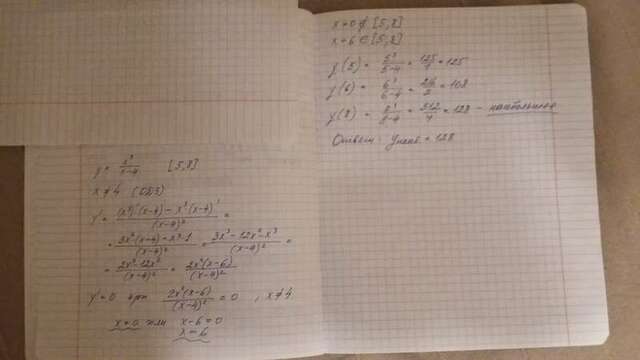 y = x³/(x-4) [5;8]
x ≠ 4 (ОДЗ)
y' = ((x³)'(x-4) - x³(x-4)')/(x-4)² =
= (3x²(x-4) - x³·1)/(x-4)² = (3x³-12x²-x³)/(x-4)² =
= (2x³-12x²)/(x-4)² = 2x²(x-6)/(x-4)²
y' = 0 при 2x²(x-6)/(x-4)² = 0 , x ≠ 4
x = 0 или x-6 = 0
x = 6
x = 0 ∉ [5;8]
x = 6 ∈ [5;8]
y(5) = 5³/(5-4) = 125/1 = 125
y(6) = 6³/(6-4) = 216/2 = 108
y(8) = 8³/(8-4) = 512/4 = 128 - наибольшее
Ответ: yнаиб = 128